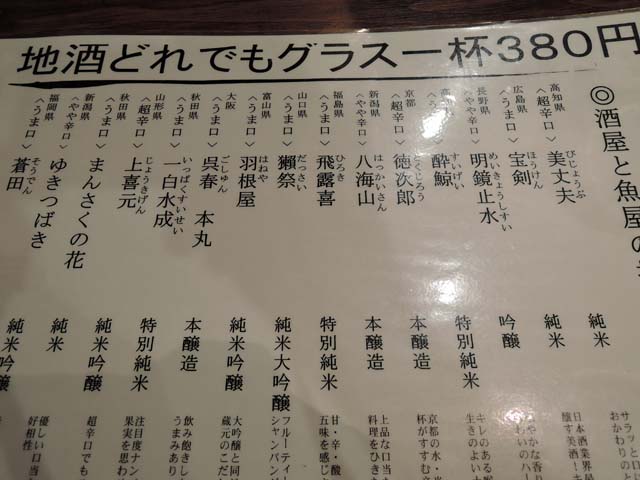 地酒どれでもグラス一杯380円
◎酒屋と魚屋の
純米
サラッと口
おかわりの
高知県
〈超辛口〉
美丈夫
びじょうぶ
純米
日本酒業界
醸す美酒！
広島県
〈うま口〉
宝剣
ほうけん
吟醸
やかな香り
わいのハー
長野県
〈やや辛口〉
明鏡止水
めいきょうしすい
特別純米
キレのある
生きのよい
〈辛口〉
酔鯨
すいげい
京都
〈超辛口〉
徳次郎
とくじろう
本醸造
京都の水・
杯がすすむ
新潟県
〈やや辛口〉
八海山
はっかいさん
本醸造
上品な口当
料理をひき
福島県
〈うま口〉
飛露喜
ひろき
特別純米
甘・辛・酸
五味を感じ
山口県
〈うま口〉
獺祭
だっさい
純米大吟醸
フルーティー
シャンパン
富山県
〈うま口〉
羽根屋
はねや
純米吟醸
大吟醸と同
蔵元のこだ
大阪
〈うま口〉
呉春 本丸
ごしゅん
本醸造
飲み飽きし
うまみあり
秋田県
〈うま口〉
一白水成
いっぱくすいせい
特別純米
注目度ナン
果実を思わ
山形県
〈超辛口〉
上喜元
じょうきげん
純米吟醸
超辛口でも
秋田県
〈うま口〉
まんさくの花
純米
優しい口当
好相性
新潟県
〈やや辛口〉
ゆきつばき
純米吟醸
福岡県
〈うま口〉
蒼田
そうでん